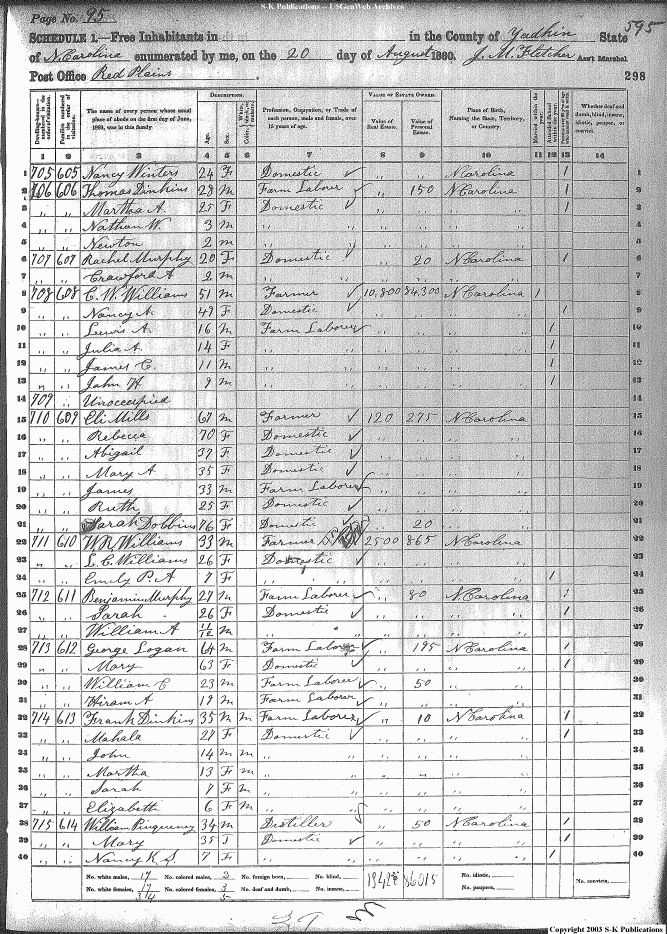 S-K Publications -- USGenWeb Archives
Page No. 95
595
SCHEDULE 1.—Free Inhabitants in in the County of Yadkin State
of N Carolina enumerated by me, on the 20 day of August 1860. J. M. Fletcher Ass't Marshal
Post Office Red Plains 298
DESCRIPTION. VALUE OF ESTATE OWNED.
The name of every person whose usual place of abode on the first day of June, 1860, was in this family.
Age. Sex.
Profession, Occupation, or Trade of each person, male and female, over 15 years of age.
Value of Real Estate. Value of Personal Estate.
Place of Birth, Naming the State, Territory, or Country.
Married within the year. Attended School within the year.
Whether deaf and dumb, blind, insane, idiotic, pauper, or convict.
1 2 3 4 5 6 7 8 9 10 11 12 13 14
1 705 605 Nancy Winters 24 F Domestic ✓ " " N Carolina / 1
2 706 606 Thomas Dinkins 28 m Farm Labour ✓ " 150 N Carolina / 2
3 " " Martha A. 25 F Domestic ✓ " " " " / 3
4 " " Nathan W. 3 m " " " " " " 4
5 " " Newton 2 m " " " " " " 5
6 707 607 Rachel Murphy 20 F Domestic ✓ " 20 N Carolina / 6
7 " " Crawford A 2 m " " " " " " 7
8 708 608 C. W. Williams 51 m Farmer ✓ 10,800 84300 N Carolina 1 8
9 " " Nancy A 49 F Domestic ✓ " " " " / 9
10 " " Lewis A. 16 m Farm Laborer ✓ " " " " / 10
11 " " Julia A. 14 F " " " " " " / 11
12 " " James C. 11 m " " " " " " / 12
13 " " John H 9 m " " " " " " / 13
14 709 " Unoccupied 14
15 710 609 Eli Mills 67 m Farmer ✓ 120 275 N Carolina 15
16 " " Rebecca 70 F Domestic ✓ " " " " 16
17 " " Abigail 37 F Domestic ✓ " " " " 17
18 " " Mary A 35 F Domestic ✓ " " " " 18
19 " " James 33 m Farm Laborer ✓ " " " " 19
20 " " Ruth 25 F Domestic ✓ " " " " 20
21 " " Sarah Dobbins 76 F Domestic ✓ " 20 " " 21
22 711 610 W. R. Williams 33 m Farmer 2500 865 N Carolina 22
23 " " L. C. Williams 26 F Domestic ✓ " " " " 23
24 " " Emily P. A 7 F " " " " " " / 24
25 712 611 Benjamin Murphy 27 m Farm Laborer ✓ " 80 N. Carolina / 25
26 " " Sarah 26 F Domestic ✓ " " " " / 26
27 " " William A 11/12 m " " " " " " 27
28 713 612 George Logan 64 m Farm Laborer ✓ " 195 N Carolina / 28
29 " " Mary 63 F Domestic ✓ " " " " / 29
30 " " William C 23 m Farm Laborer ✓ " 50 " " 30
31 " " Hiram A 19 m Farm Laborer ✓ " " " " 31
32 714 613 Frank Dinkins 35 m m Farm Laborer ✓ " 10 N Carolina / 32
33 " " Mahala 27 F Domestic ✓ " " " " / 33
34 " " John 14 m m " " " " " " 34
35 " " Martha 13 F m " " " " " " 35
36 " " Sarah 7 F m " " " " " " 36
37 " " Elizabeth 6 F m " " " " " " 37
38 715 614 William 34 m Distiller " 50 N Carolina / 38
39 " " Mary 35 Domestic ✓ " " " " / 39
40 " " Nancy K. S. 7 F " " " " " " / 40
No. white males, 17 No. colored males, 2 No. foreign born, No. blind, No. idiotic, No. convicts,
No. white females, 17 No. colored females, 3 No. deaf and dumb, No. insane, 86015 No. paupers,
34 5
Copyright 2003 S-K Publications